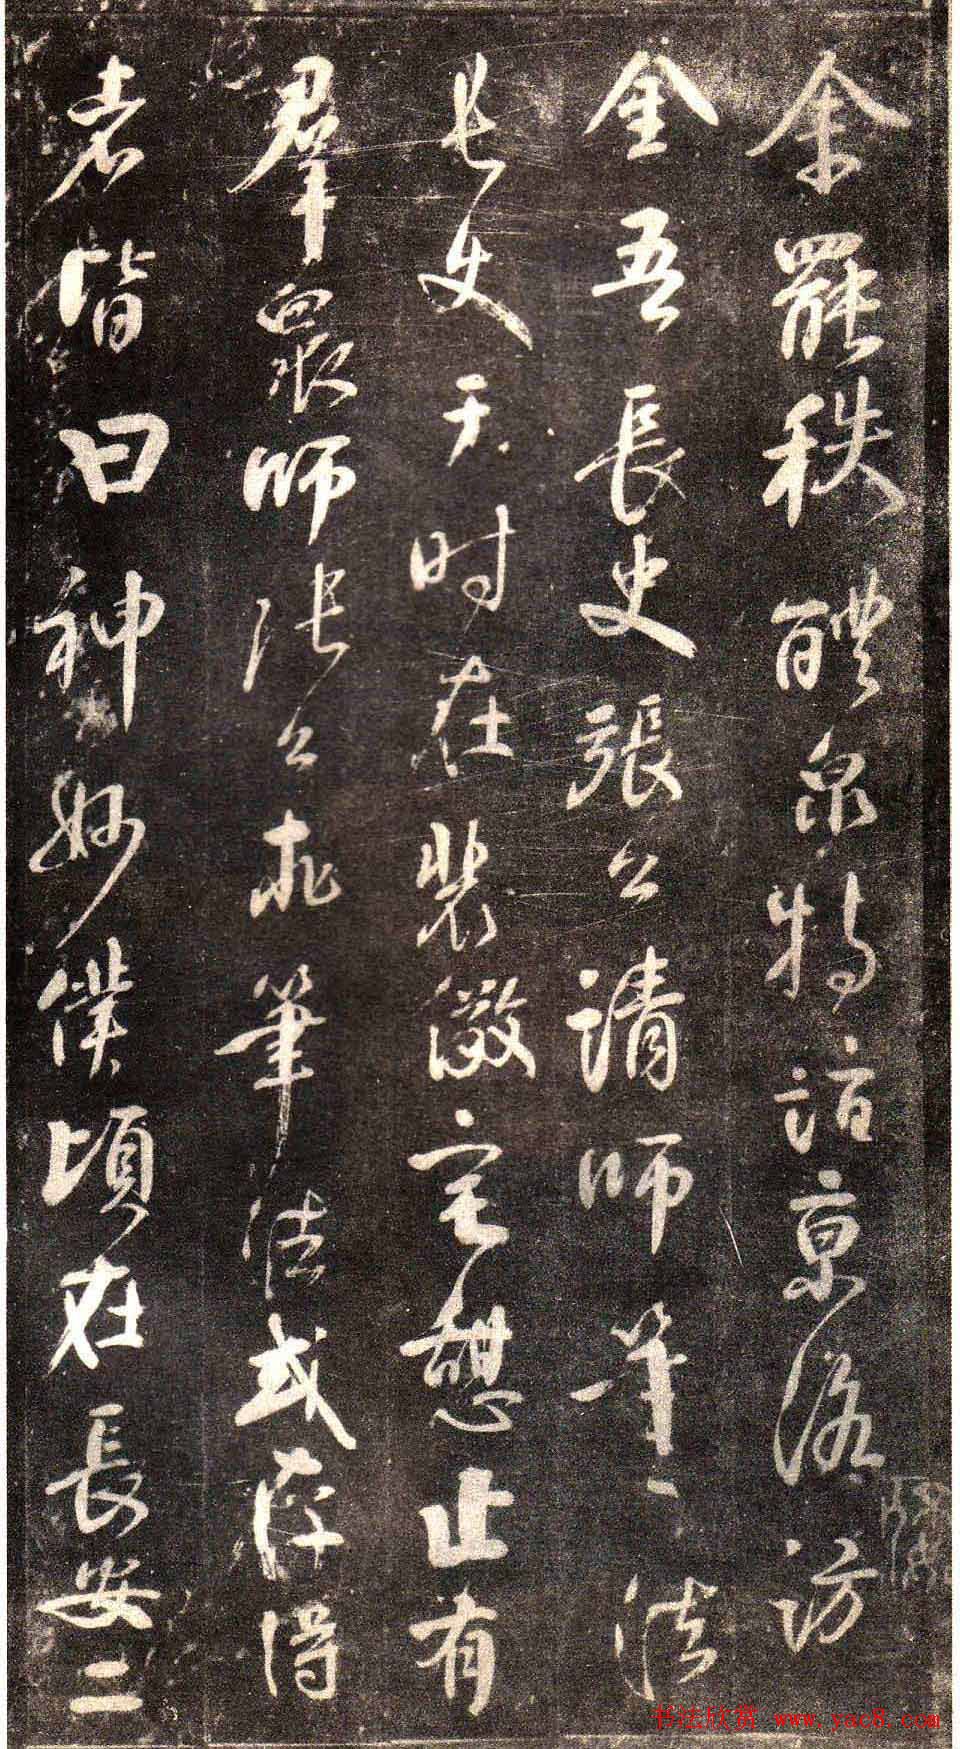 余罷秩醴泉特詣京洛訪
金吾長史張公請師筆法
長史于时在裴儆宅憩止有
羣眾師張公求筆法或存得
者皆曰神妙僕頃在長安二
书法欣赏 www.yac8.com